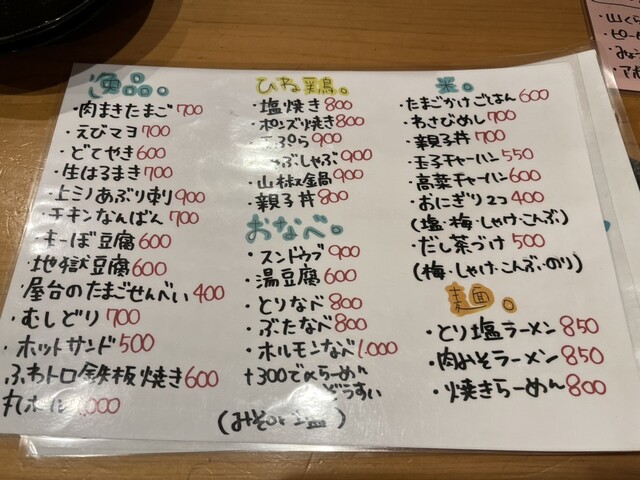 逸品。
・肉まきたまご 700
・えびマヨ 700
・どてやき 600
・生はるまき 700
・上ミノあぶり刺り 900
・チキンなんばん 700
・まーぼ豆腐 600
・地獄豆腐 600
・屋台のたまごせんべい 400
・むしどり 700
・ホットサンド 500
ふわトロ鉄板焼き 600
丸ホール 1,000
ひね鶏。
・塩焼き 800
・ポンズ焼き 800
900
しゃぶしゃぶ 900
・山椒鍋 900
・親子丼 800
おなべ。
・スンドゥブ 900
・湯豆腐 600
・とりなべ 800
・ぶたなべ 800
・ホルモンなべ 1,000
+300でらーめん
どうすい
(みそor塩)
米。
・たまごかけごはん 600
・わさびめし 700
・親子丼 700
・玉子チャーハン 550
・高菜チャーハン 600
・おにぎり2コ 400
(塩・梅・しゃけ・こんぶ)
・だし茶づけ 500
(梅・しゃけ・こんぶ・のり)
麺。
・とり塩ラーメン 850
・肉みそラーメン 850
・焼きらーめん 800
・山く
・ピー
・みょう
・アボ